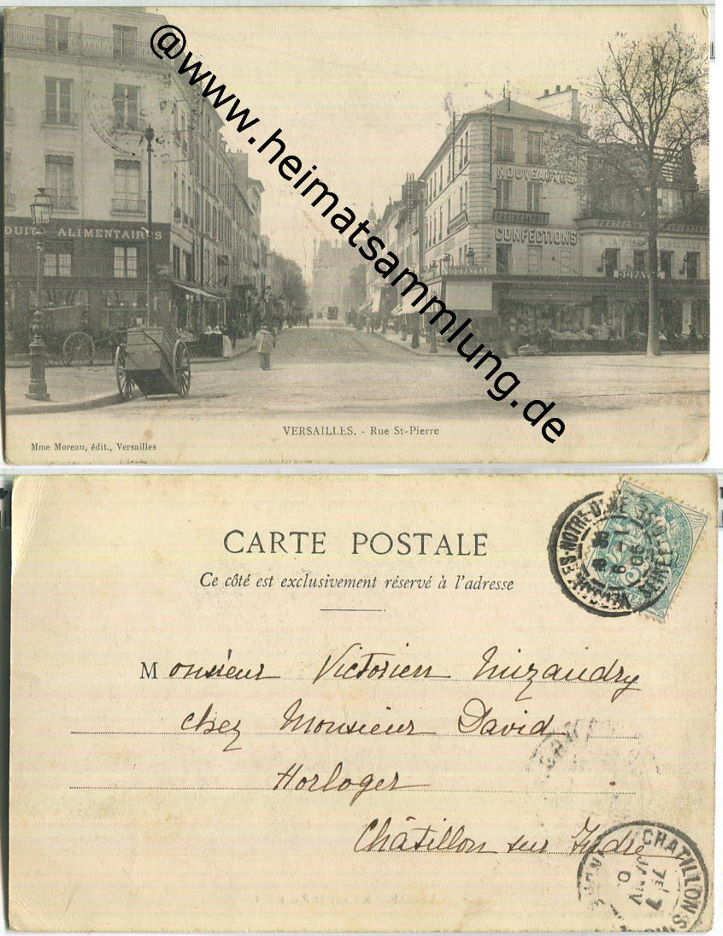 @www.heimatsammlung.de
NOUVEAUTÉS
DUIT ALIMENTAIRES
CONFECTIONS
VERSAILLES. - Rue St-Pierre
Mme Moreau, édit., Versailles
CARTE POSTALE
Ce côté est exclusivement réservé à l'adresse
Monsieur Victorien Mizaudry
chez Monsieur David
Horloger
Châtillon sur Indre
CHATILLON S